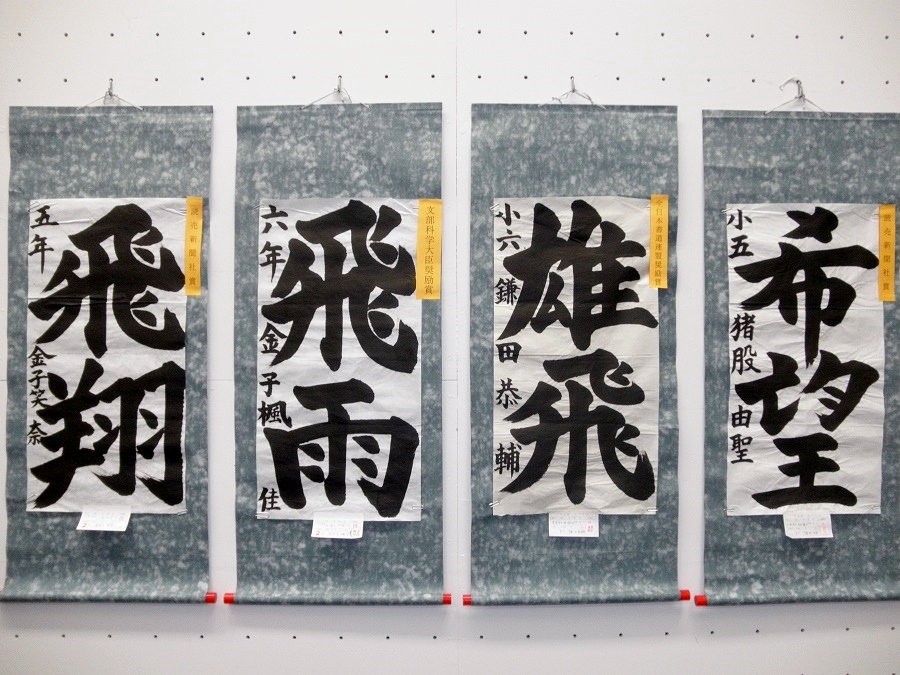 飛翔
五年 金子笑奈
読売新聞社賞
飛雨
六年 金子楓佳
文部科学大臣奨励賞
雄飛
小六 鎌田恭輔
全日本書道連盟奨励賞
希望
小五 猪股由聖
読売新聞社賞